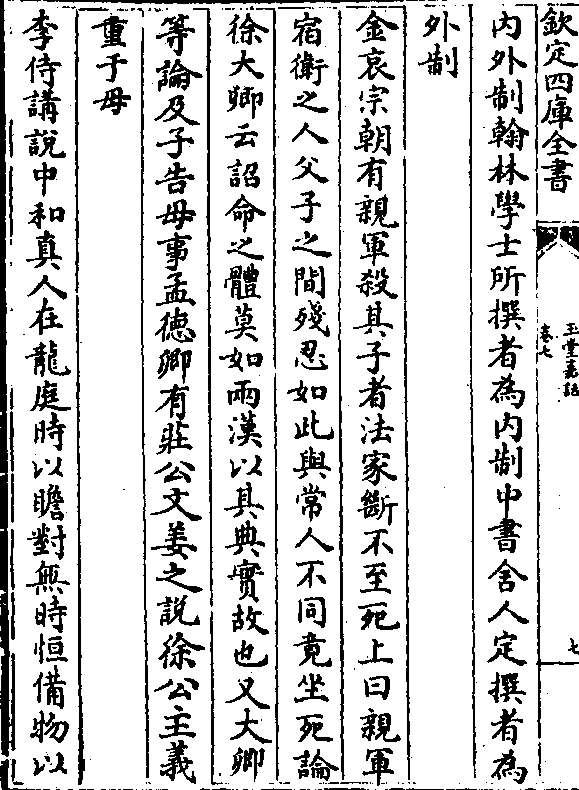 欽定四庫全書
玉堂嘉話
卷七
七
內外制翰林學士所撰者為內制中書舍人定撰者為
外制
金哀宗朝有親軍殺其子者法家斷不至死上曰親軍
宿衛之人父子之間殘忍如此與常人不同竟坐死論
徐大卿云詔命之體莫如兩漢以其典實故也又大卿
等論及子告母事孟德卿有莊公文姜之說徐公主義
重于母
李侍講說中和真人在龍庭時以瞻對無時恒備物以